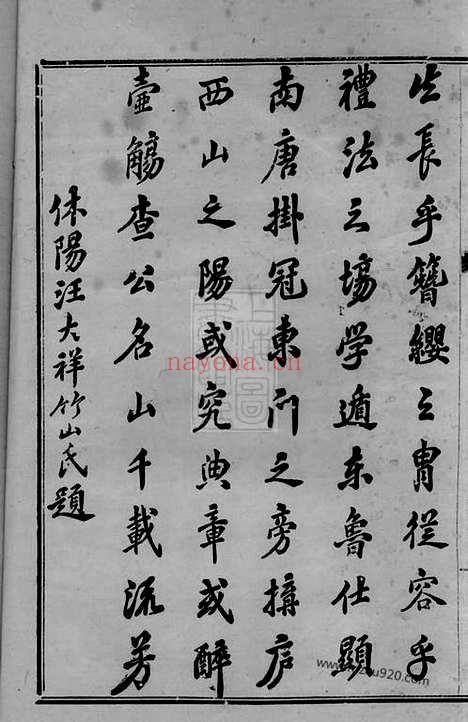 生長乎簪纓之胄從容乎
禮法之場學遁東魯仕顯
南唐掛冠東門之旁搆廬
西山之陽或究典章或醉
壺觴查公名山千載流芳
休陽汪大祥竹山氏題
nayona.cn